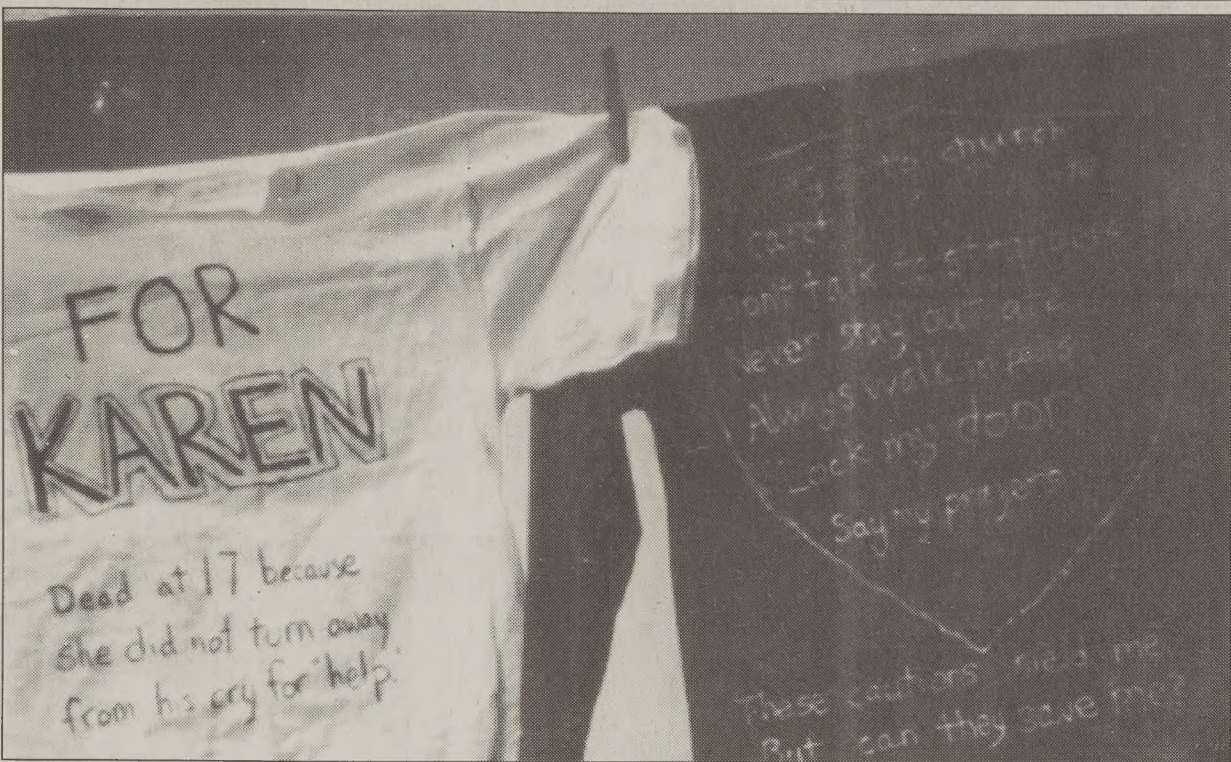 FOR
KAREN
Dead at 17 because
she did not turn away
from his cry for "help."
to church
can't
Don't talk to strangers
Never stay out late
Always walk in
Lock my door
Say my prayers
These cautions me
But can they save me?